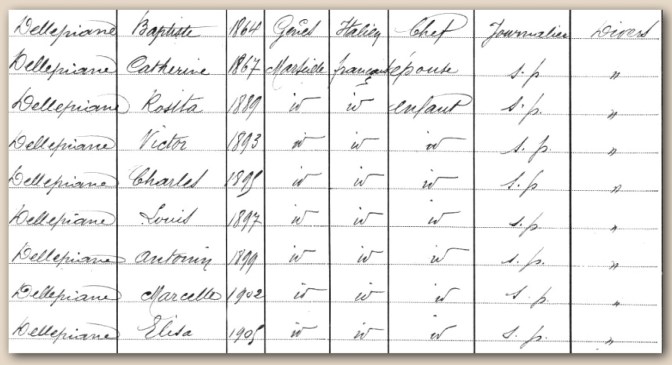 Dellepiane Baptiste 1864 Gênes Italien Chef Journalier Divers
Dellepiane Catherine 1867 Marseille française épouse s. p. "
Dellepiane Rosita 1889 id id enfant s. p. "
Dellepiane Victor 1893 id id id s. p. "
Dellepiane Charles 1895 id id id s. p. "
Dellepiane Louis 1897 id id id s. p. "
Dellepiane Antonin 1899 id id id s. p. "
Dellepiane Marcelle 1902 id id id s. p. "
Dellepiane Elisa 1905 id id id s. p. "